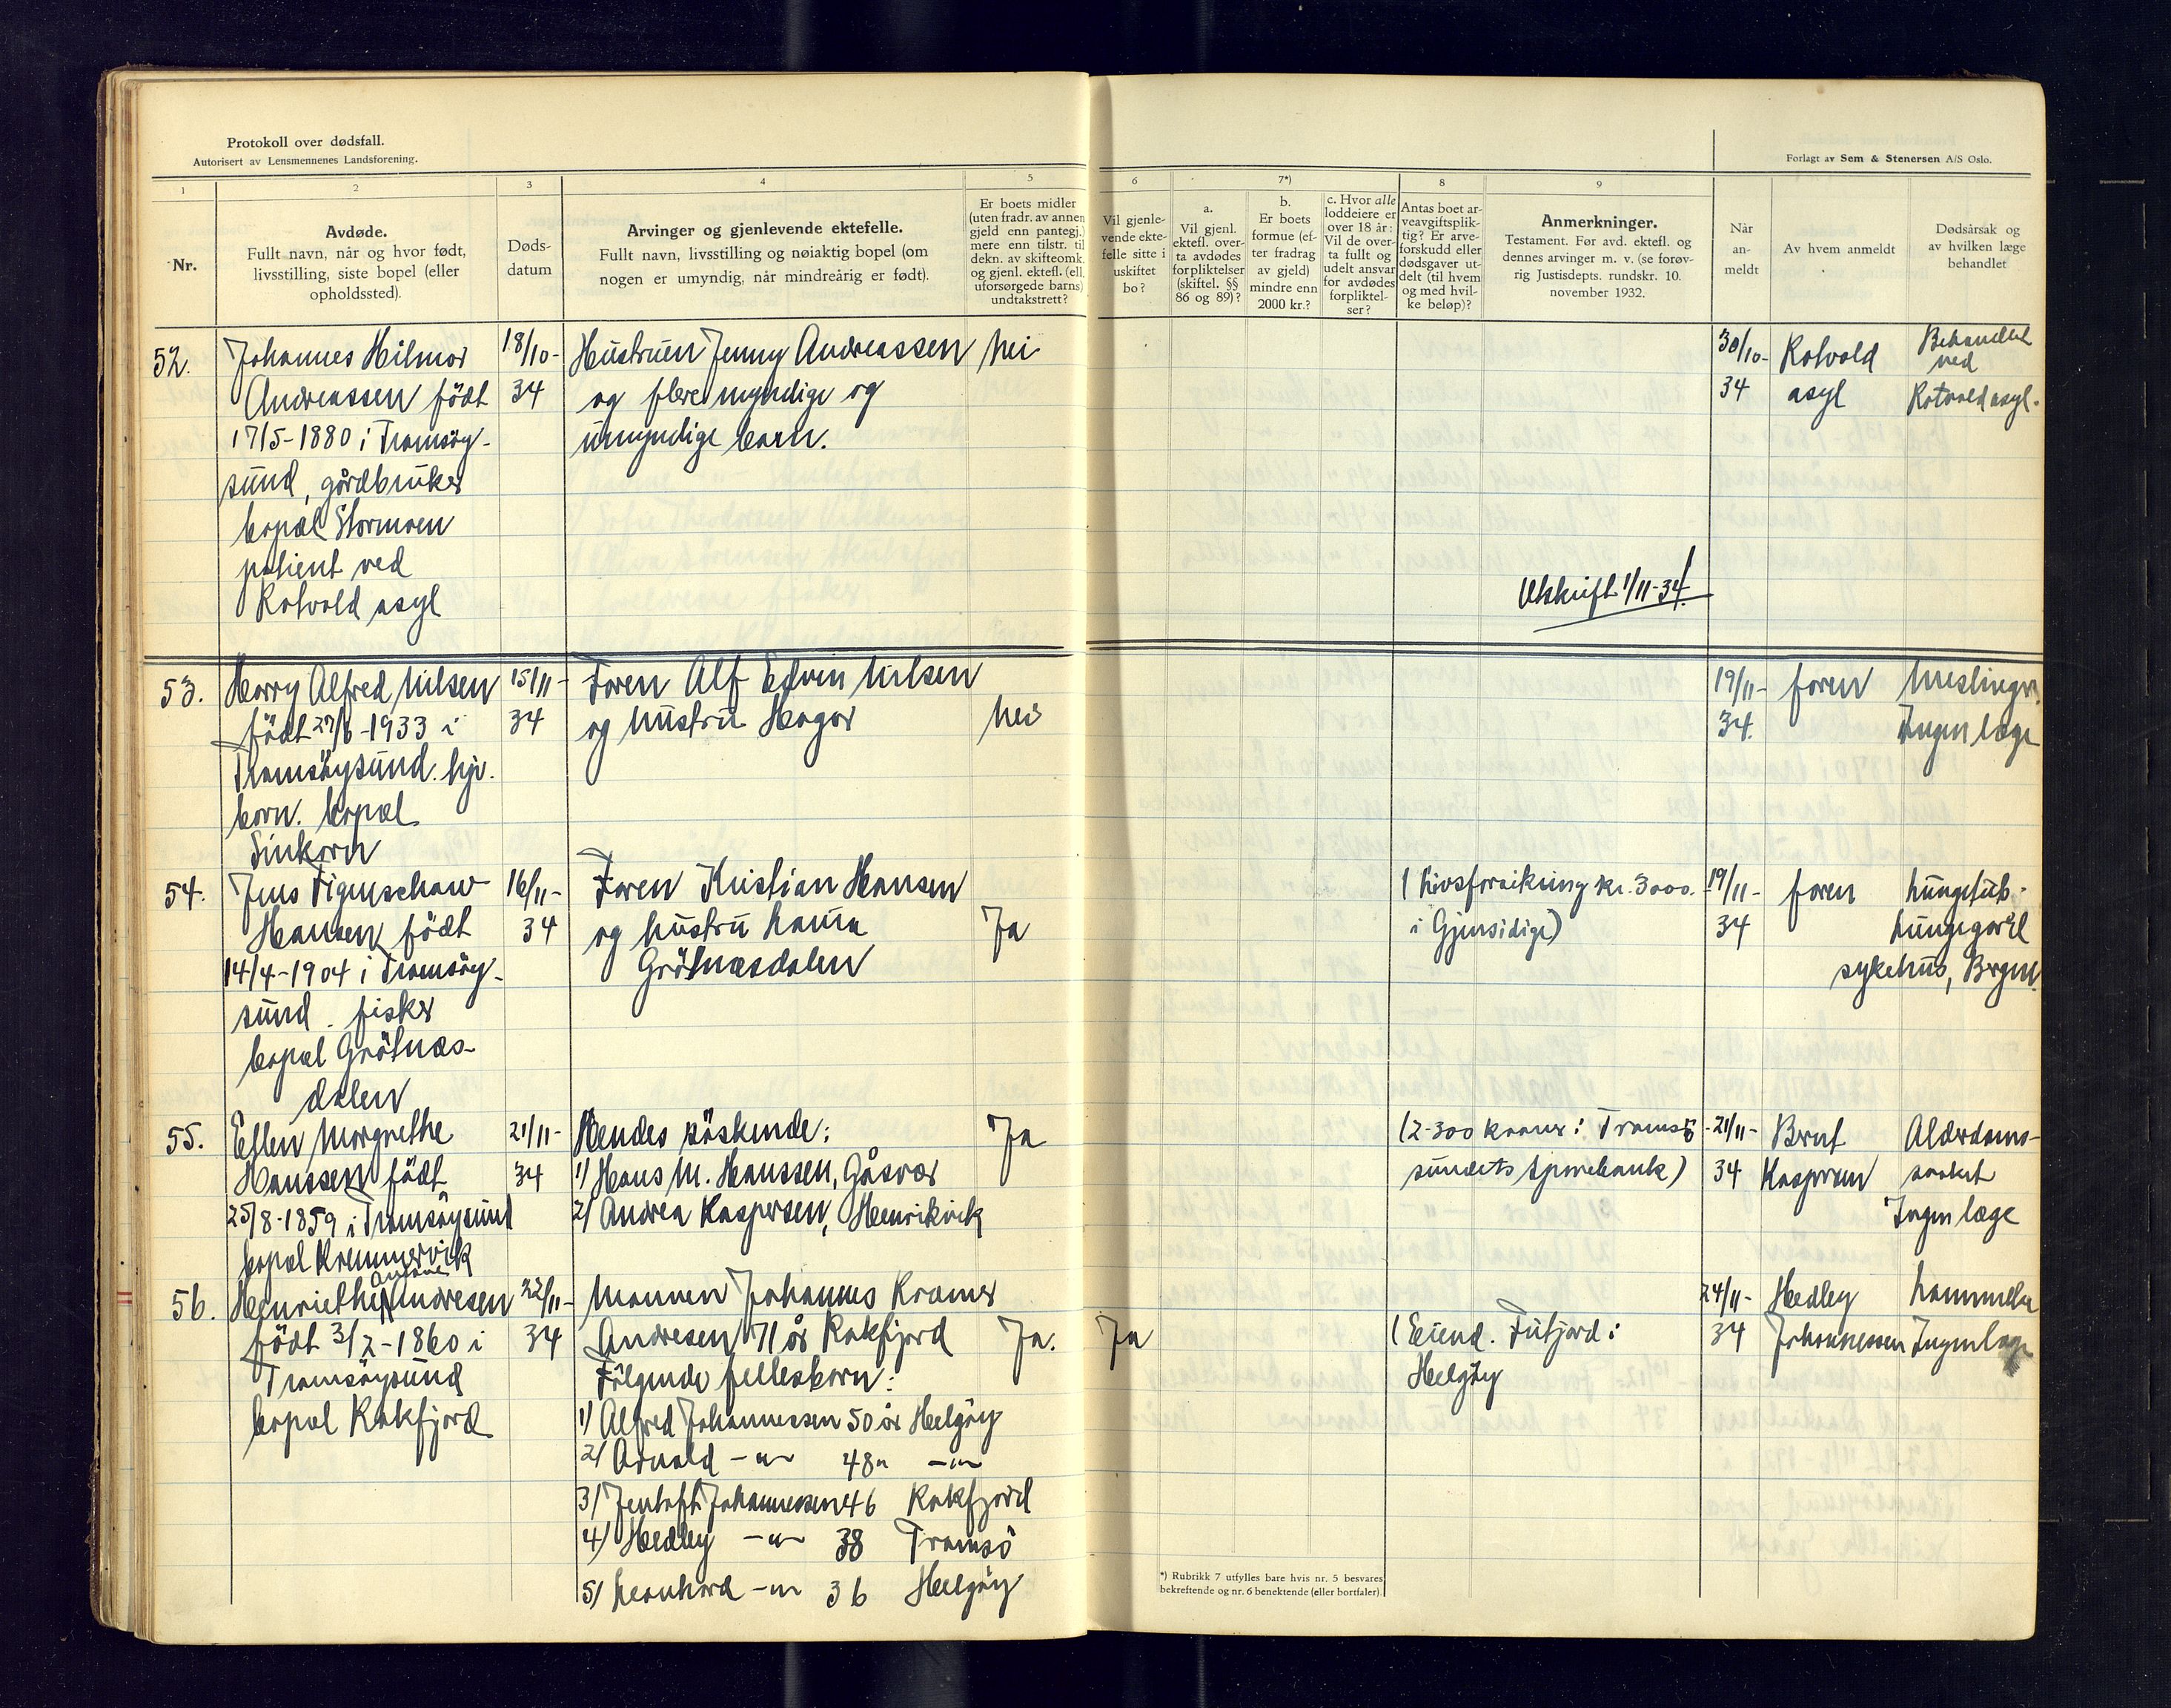 Protokoll over dødsfall.
Autorisert av Lensmennenes Landsforening.
Forlagt av Sem & Stenersen A/S Oslo.
1 2 3 4 5 6 7*) 8 9
Nr.
Avdøde.
Fullt navn, når og hvor født,
livsstilling, siste bopel (eller
opholdssted).
Døds-
datum
Arvinger og gjenlevende ektefelle.
Fullt navn, livsstilling og nøiaktig bopel (om
nogen er umyndig, når mindreårig er født).
Er boets midler
(uten fradr. av annen
gjeld enn pantegj.)
mere enn tilstr. til
dekn. av skifteomk.
og gjenl. ektefl. (ell.
uforsørgede barns)
undtakstrett?
Vil gjenle-
vende ekte-
felle sitte i
uskiftet
bo?
a.
Vil gjenl.
ektefl. over-
ta avdødes
forpliktelser
(skiftel. §§
86 og 89)?
b.
Er boets
formue (ef-
ter fradrag
av gjeld)
mindre enn
2000 kr.?
c. Hvor alle
loddeiere er
over 18 år:
Vil de over-
ta fullt og
udelt ansvar
for avdødes
forpliktel-
ser?
Antas boet ar-
veavgiftsplik-
tig? Er arve-
forskudd eller
dødsgaver ut-
delt (til hvem
og med hvil-
ke beløp)?
Anmerkninger.
Testament. Før avd. ektefl. og
dennes arvinger m. v. (se forøv-
rig Justisdepts. rundskr. 10.
november 1932.
Når
an-
meldt
Av hvem anmeldt
Dødsårsak og
av hvilken læge
behandlet
52.
Johannes Hilmar
Andreassen född
17/5-1880 i Tromsöy-
sund, gårdbruker
bopæl Stormoen
patient ved
Rotvold asyl
18/10-
34
Hustruen Jenny Andreassen
og flere myndige og
umyndige barn.
Nei
Utskrift 1/11-34.
30/10-
34
Rotvold
asyl
Behandlet
ved
Rotvold asyl.
53.
Harry Alfred Nilsen
födt 27/6-1933 i
Tromsöysund. hjv.
barn. bopæl
15/11-
34
Faren Alf Edvin Nilsen
og hustru Hagar
Nei
19/11-
34.
faren
Meslinger.
Ingen læge
54.
Jens Figenschaw
Hansen födt
14/4-1904 i Tromsöy-
sund. fisker
bopæl Grötnæs-
dalen
16/11-
34
Faren Kristian Hansen
og hustru Laura
Grötnæsdalen
Ja
(Livsforsikring kr. 3000.
i Gjensidige)
19/11-
34
faren
Lungetub.
sykehus,
55.
Ellen Margrethe
Hanssen födt
25/8-1859 i Tromsöysund
bopæl Kræmmervik
21/11-
34
Hendes söskende:
1) Hans M. Hanssen, Gåsvær
2) Andrea Kaspersen, Henrikvik
Ja
(2-300 kroner i Tromsö-
sundets Sparebank)
21/11-
34
Bernt
Kaspersen
Alderdoms-
svakhet
Ingen læge
56.
Henriethe Andresen
födt 3/2-1860 i
Tromsöysund
bopæl Kakfjord
22/11-
34
Mannen Johannes Kramer
Andresen 71 år Kakfjord
Fölgende fellesbarn:
1) Alfred Johannessen 50 år Helgöy
2) Arnold -"- 48 " -"-
3) Jentoft Johannessen 46 Kakfjord
4) Hedley -"- 38 Tromsö
5) Leonhard -"- 36 Helgöy
Ja.
Ja
(Eiend. Futfjord i
Helgöy
24/11-
34
Hedley
Johannessen
Lammelse
Ingen læge
*) Rubrikk 7 utfylles bare hvis nr. 5 besvares
bekreftende og nr. 6 benektende (eller bortfaler).